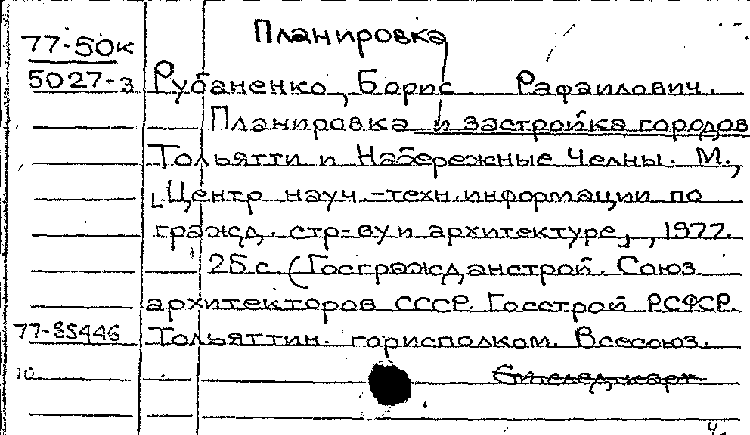 Планировка
77-50к
5027-з Рубаненко, Борис Рафаилович.
Планировка и застройка городов
Тольятти и Набережные Челны. М.,
[Центр науч.-техн.информации по
гражд. стр-ву и архитектуре], 1977.
25 с. (Госгражданстрой. Союз
архитекторов СССР. Госстрой РСФСР.
77-85446 Тольяттин. горисполком. Всесоюз.
10
См.след.карт